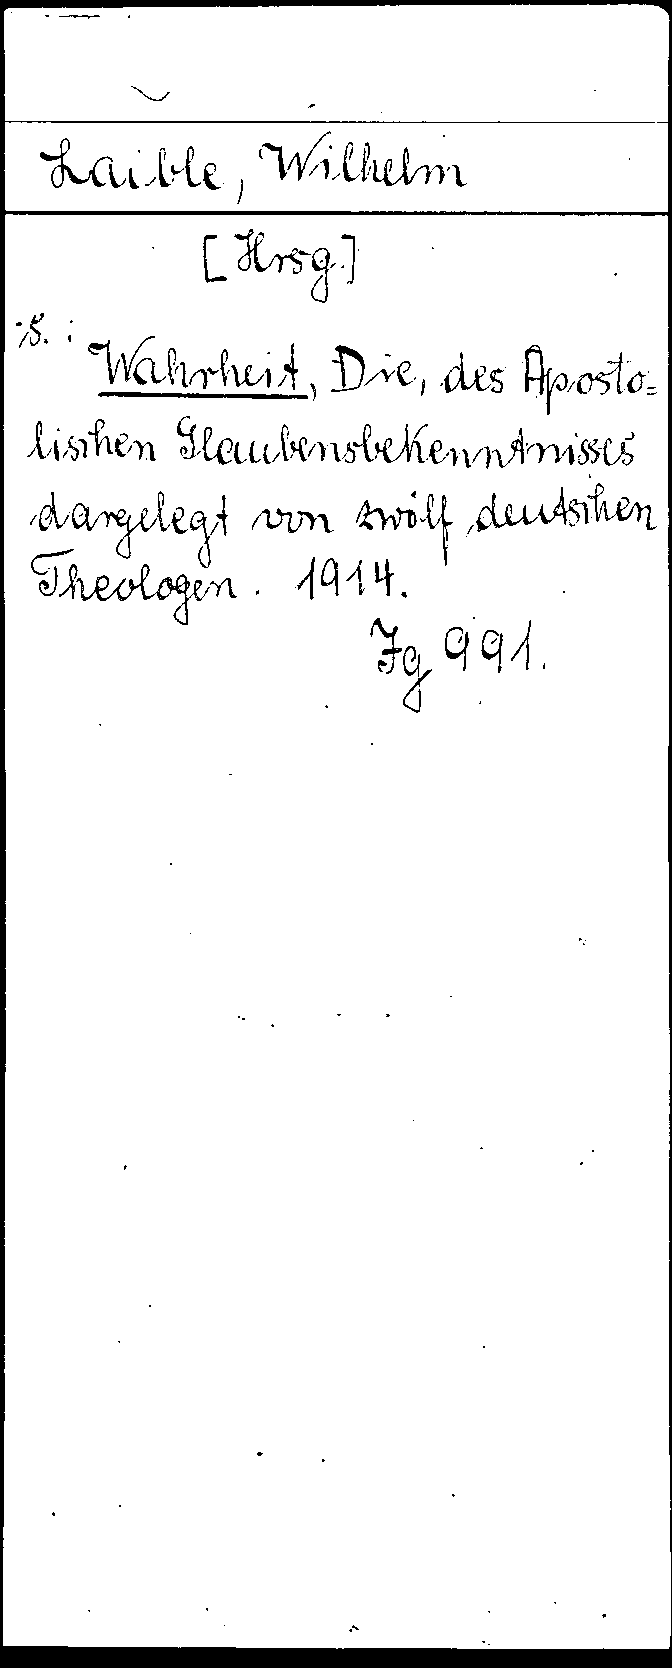 Laible, Wilhelm
[Hrsg.]
s. :
Wahrheit, Die, des Aposto=
lischen Glaubensbekenntnisses
dargelegt von zwölf deutschen
Theologen. 1914.
Jg 991.